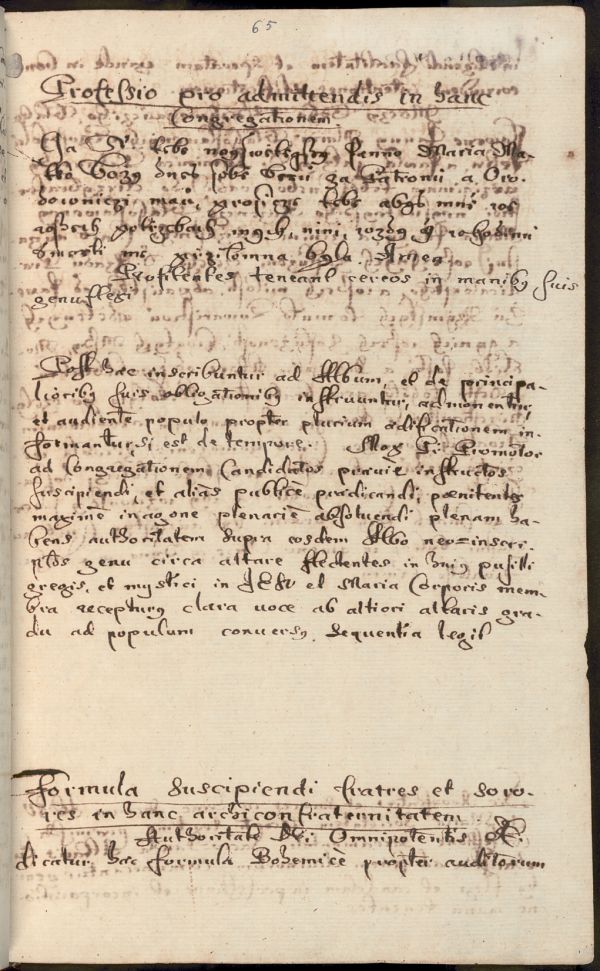 65
Professio pro admittendis in hanc
Congregationem
Ja N. tebe neyswětegssy Panno Maria Ma-
tko Božy dnes sobě beru za Patronu a Oro-
downicy mau, prosycze tebe abys mně we
wssech potrzebach mych, nini, wzdy y w hodinu
Smrti mé przitomna byla Amen
Profitentes teneant cereos in manibȝ suis
genuflexi
Post hac inscribuntur ad Album, et de principa-
lioribȝ suis obligationibȝ instruuntur, admonentur,
et audiente populo propter plurium ædificationem in-
formantur, si est de tempore. Mox P. Promotor
ad Congregationem Candidatos prævie instructos
suscipiendi, et alias publice prædicandi, pœnitentes
maxime in agone plenarie absolvendi plenam ha-
bens authoritatem supra eosdem Albo neo-inscri-
ptos genu circa altare flectentes in huius pusilli
gregis, et mystici in JESU et Maria Corporis mem-
bra recepturȝ clara voce ab altiori altaris gra-
du ad populum conversȝ sequentia legit
Formula suscipiendi fratres et soro-
res in hanc archiconfraternitatem
Authoritate Dei Omnipotentis &
dicatur hac formula Bohemice propter auditorum